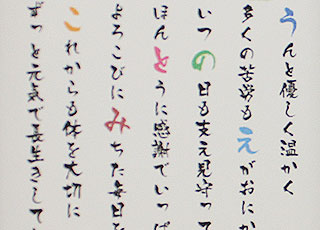 うんと優しく温かく
多くの苦労もえがおにか
いつの日も支え見守って
ほんとうに感謝でいっぱ
よろこびにみちた毎日を
これからも体を大切に
ずっと元気で長生きして